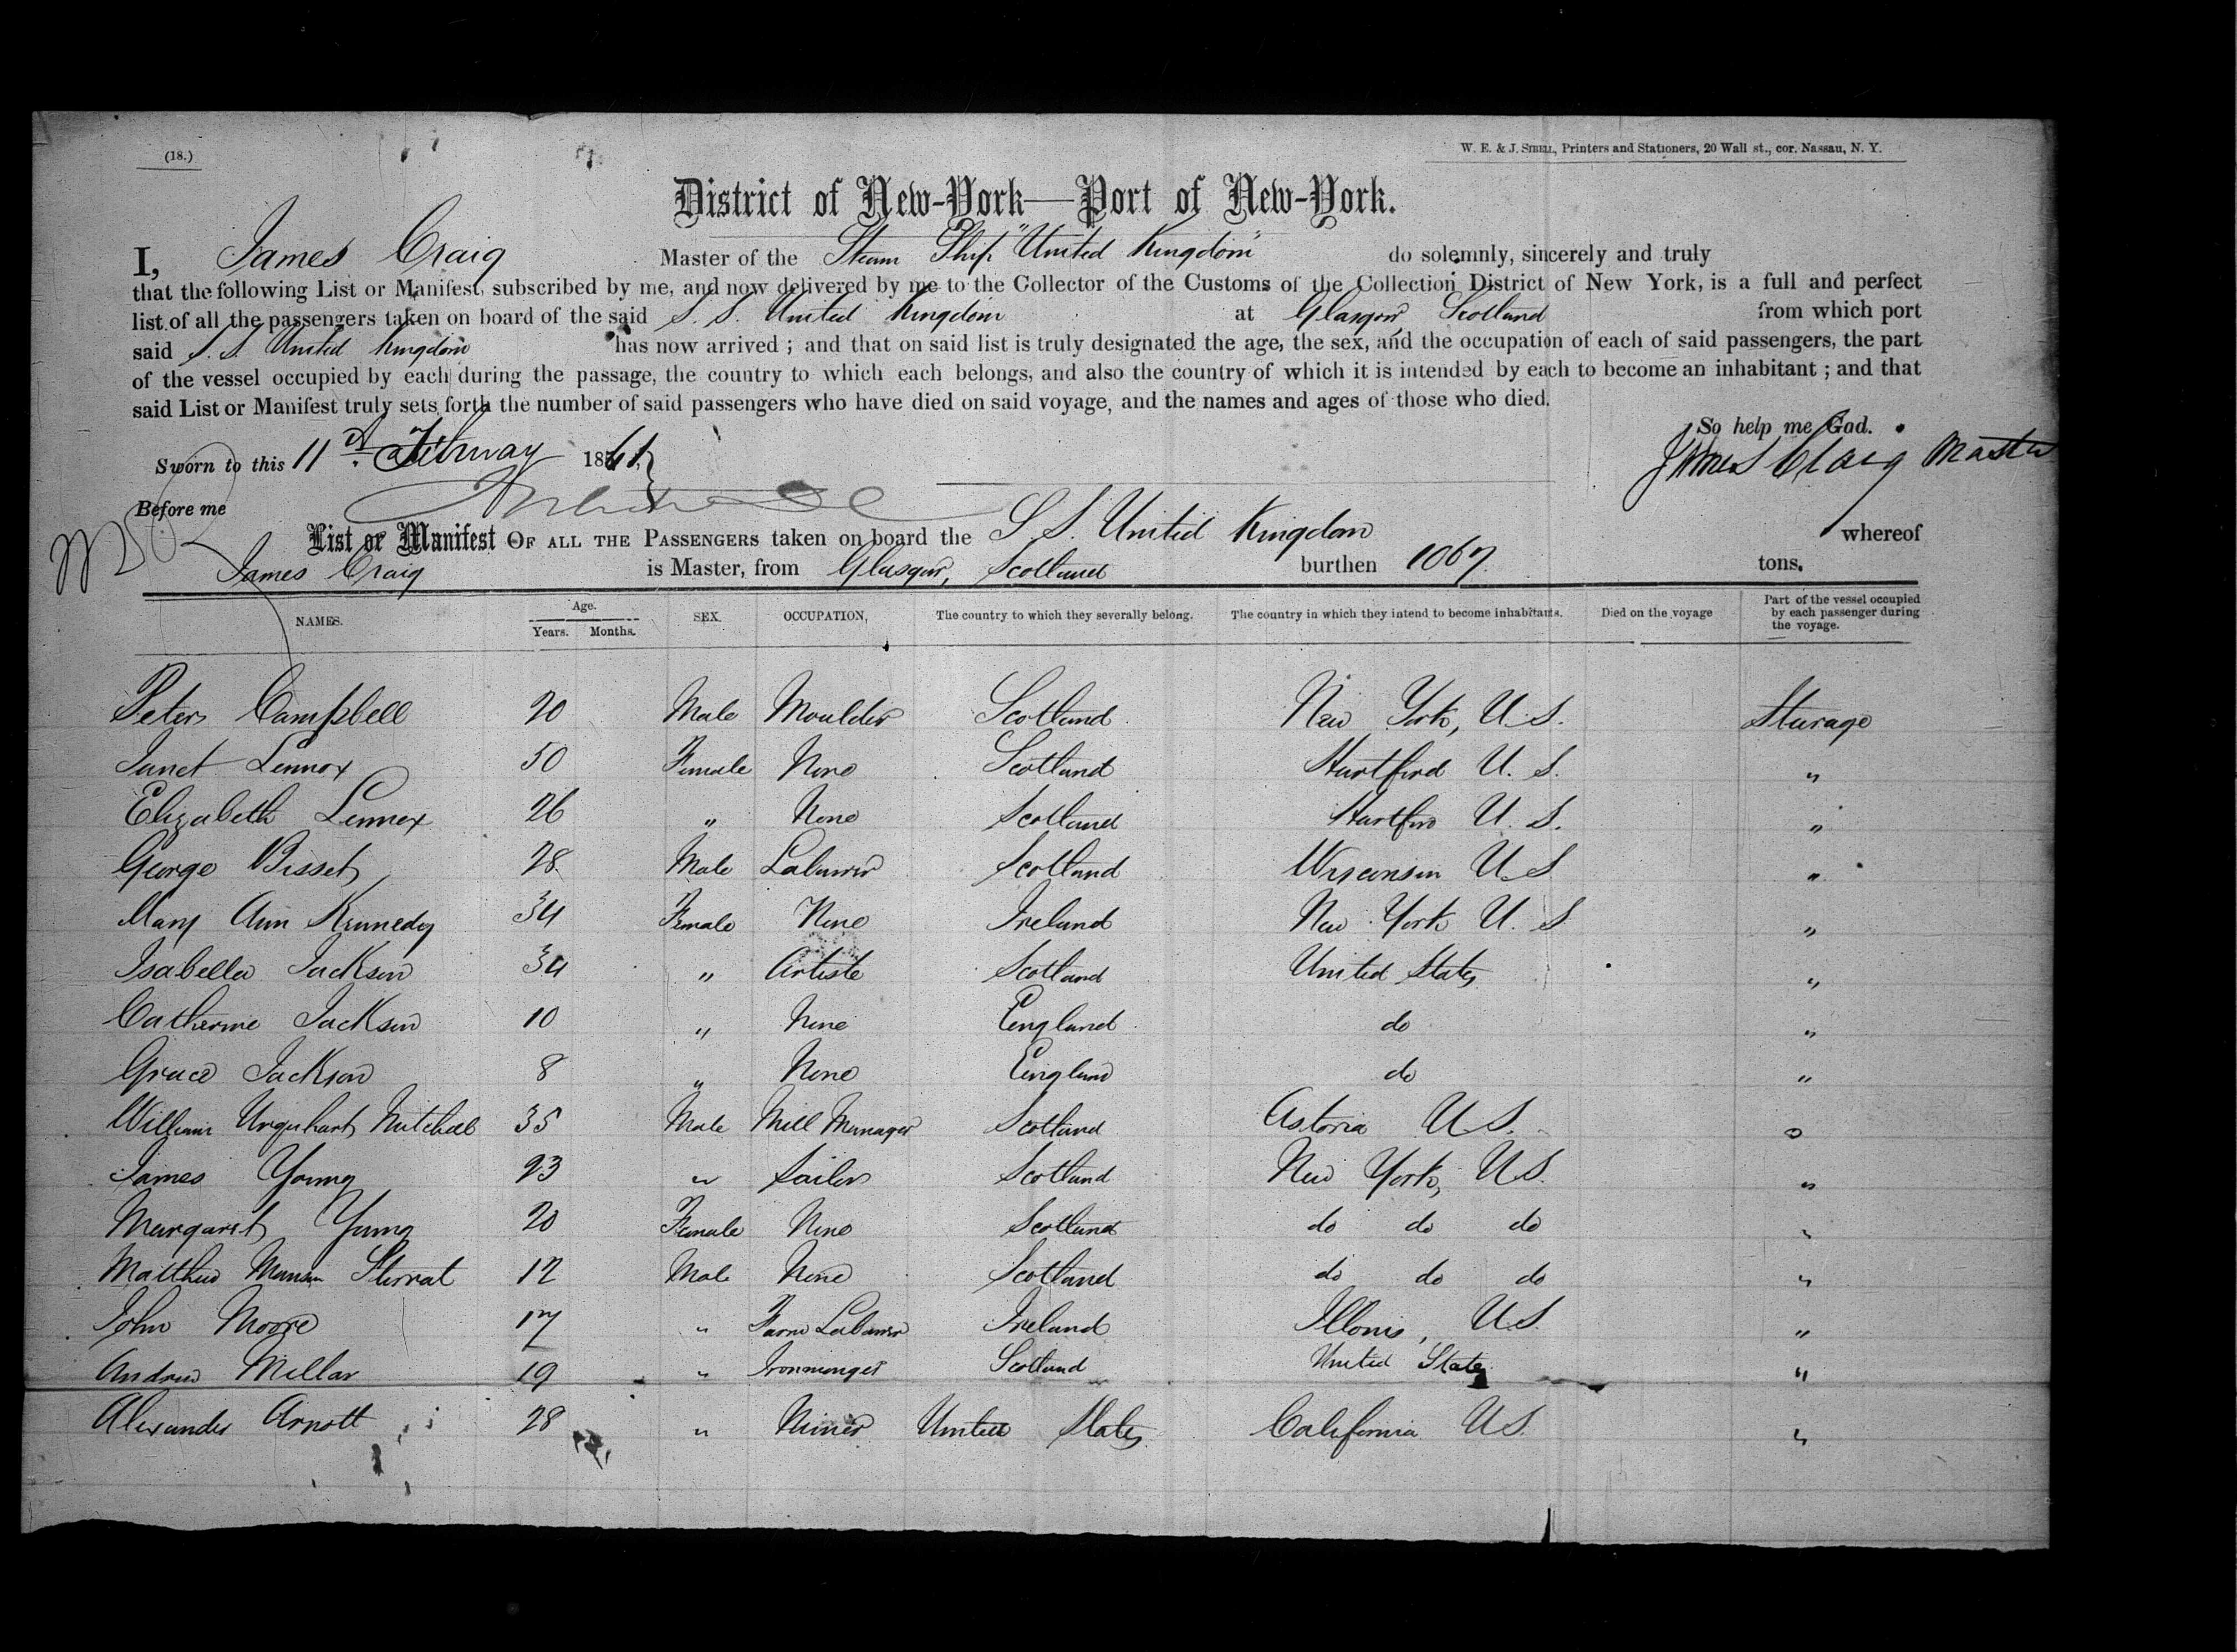 (18.)
W. E. & J. SIBELL, Printers and Stationers, 20 Wall st., cor. Nassau, N. Y.
District of New-York—Port of New-York.
I, James Craig Master of the Steam Ship "United Kingdom" do solemnly, sincerely and truly
that the following List or Manifest, subscribed by me, and now delivered by me to the Collector of the Customs of the Collection District of New York, is a full and perfect
list of all the passengers taken on board of the said S. S. United Kingdom at Glasgow, Scotland from which port
said S. S. United Kingdom has now arrived ; and that on said list is truly designated the age, the sex, and the occupation of each of said passengers, the part
of the vessel occupied by each during the passage, the country to which each belongs, and also the country of which it is intended by each to become an inhabitant ; and that
said List or Manifest truly sets forth the number of said passengers who have died on said voyage, and the names and ages of those who died.
So help me God.
Sworn to this 11th February 1861, James Craig Master
Before me
List or Manifest OF ALL THE PASSENGERS taken on board the S. S. United Kingdom whereof
James Craig is Master, from Glasgow, Scotland burthen 1067 tons.
NAMES. Age. Years. Months. SEX. OCCUPATION, The country to which they severally belong. The country in which they intend to become inhabitants. Died on the voyage Part of the vessel occupied by each passenger during the voyage.
Peter Campbell 20 Male Moulder Scotland New York, U. S. Sturage
Janet Lennox 50 Female None Scotland Hartford U. S. "
Elizabeth Lennox 26 " None Scotland Hartford U. S. "
George Bisset 28 Male Labourer Scotland Wisconsin U. S "
Mary Ann Kennedy 34 Female None Ireland New York U. S "
Isabella Jackson 34 " Artiste Scotland United States "
Catherine Jackson 10 " None England do "
Grace Jackson 8 " None England do "
William Urquhart Mitchell 35 Male Mill Manager Scotland Astoria U S. "
James Young 23 " Sailor Scotland New York, U S. "
Margaret Young 20 Female None Scotland do do do "
Matthew Manson Sterrat 12 Male None Scotland do do do "
John Moore 17 " Farm Labourer Ireland Illonis, U S. "
Andrew Millar 19 " Ironmonger Scotland United States "
Alexander Arnott 28 " Miner United States California U S. "